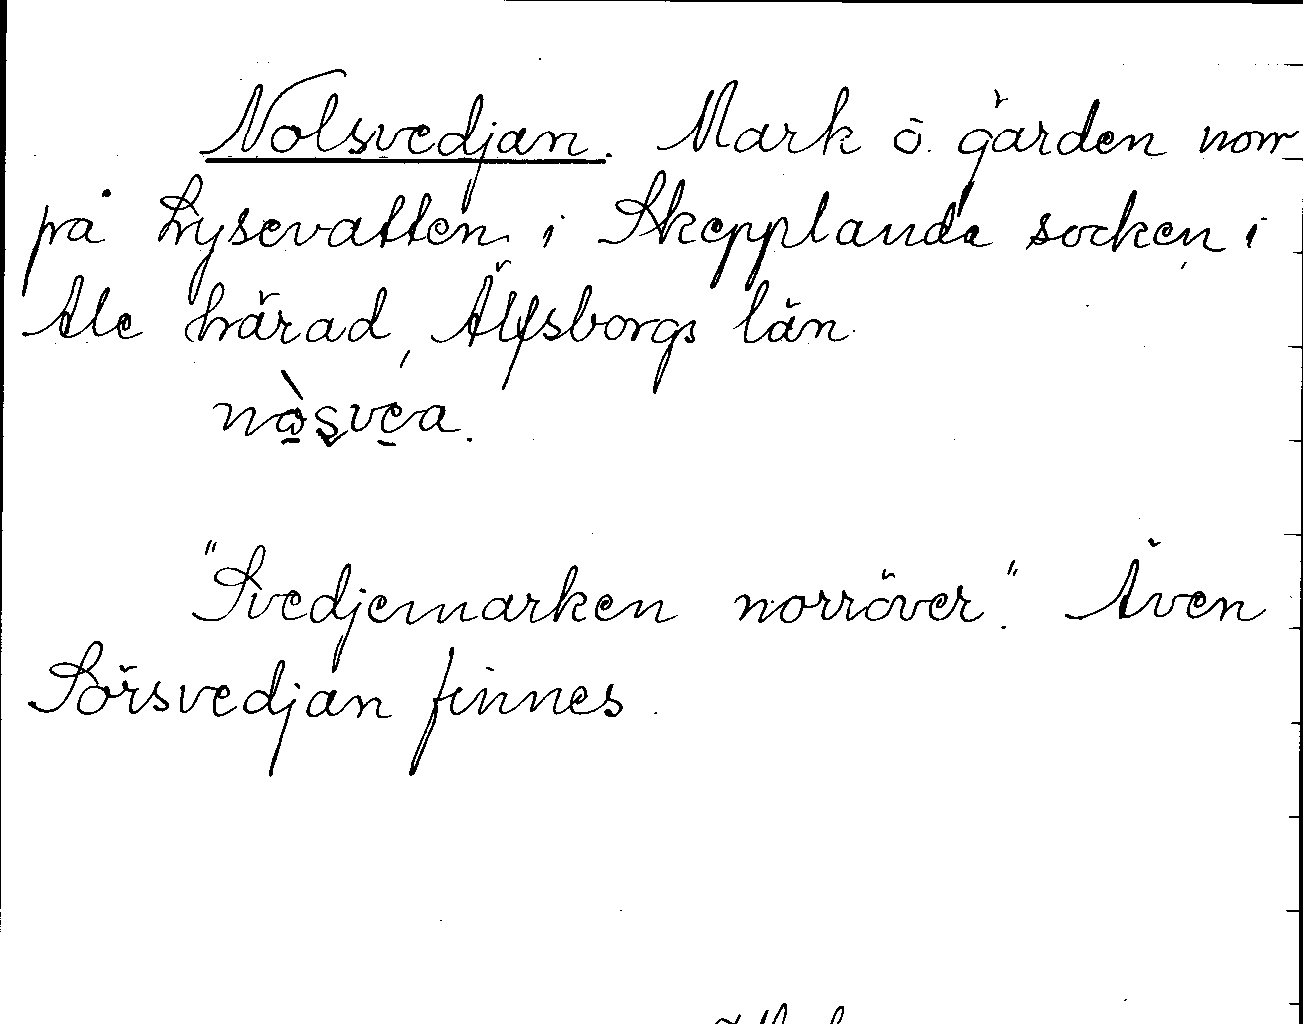 Nolsvedjan. Mark ö. gården norr
på Lysevatten i Skepplanda socken i
Ale härad, Älfsborgs län.
"Svedjemarken norröver." Även
Sörsvedjan finnes.